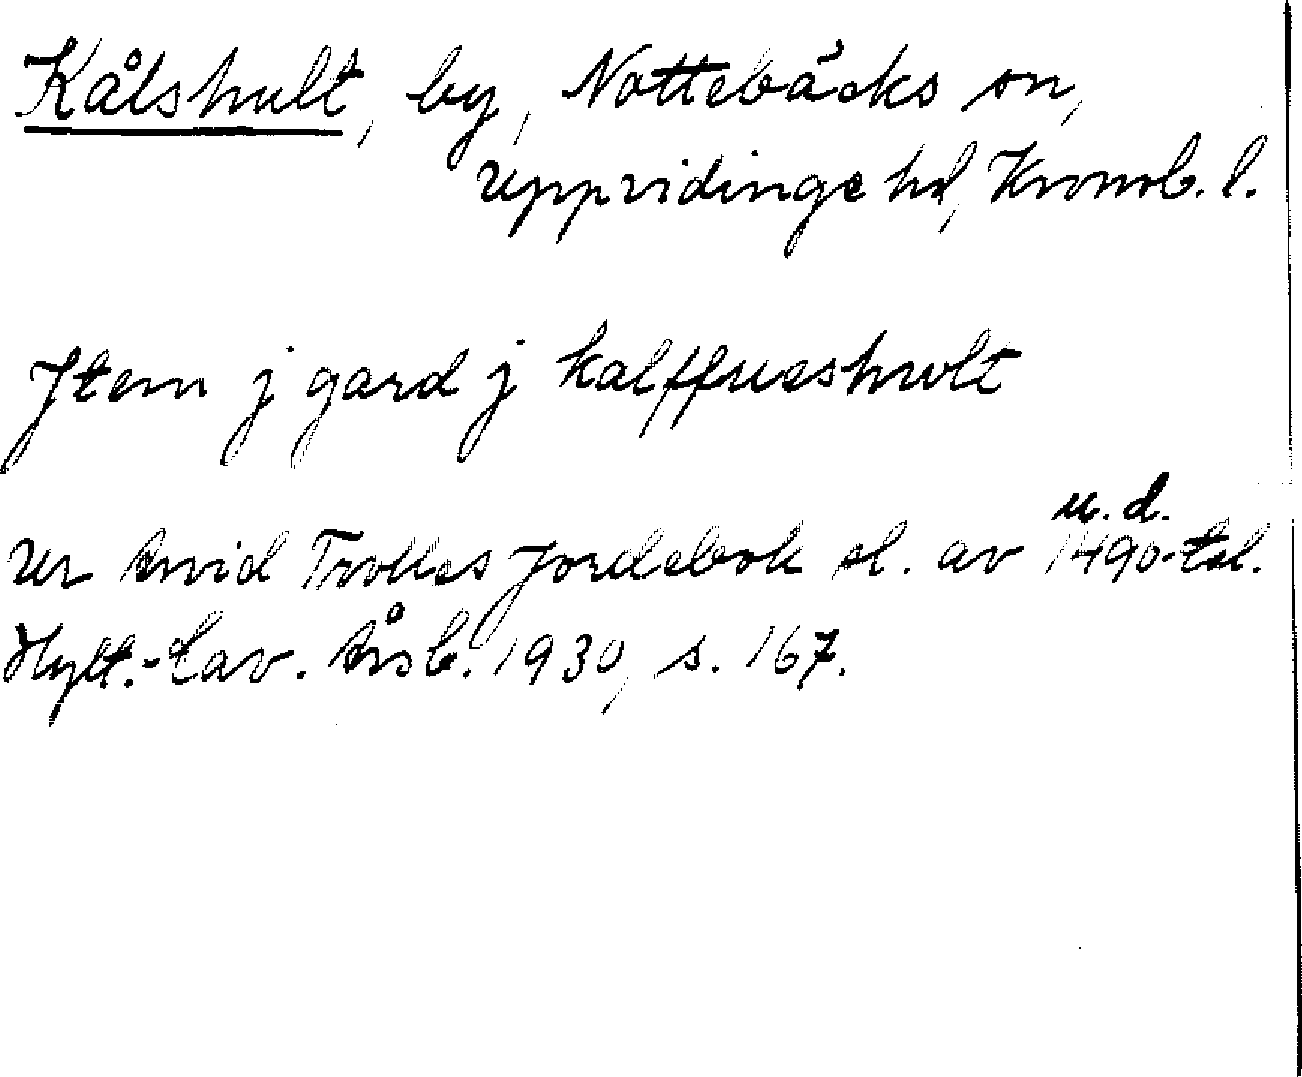 Kålshult, by, Nottebäcks sn,
Uppvidinge hd, Kronob. l.
Jtem j gard j kalffueshwlt
u. d.
Ur Arvid Trolles Jordebok sl. av 1490-tal.
Hylt.-Cav. Årsb. 1930, s. 167.